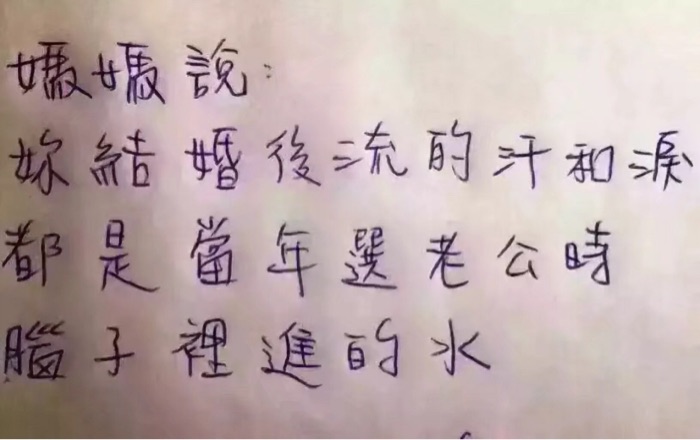 媽媽說:
妳結婚後流的汗和淚
都是當年選老公時
腦子裡進的水